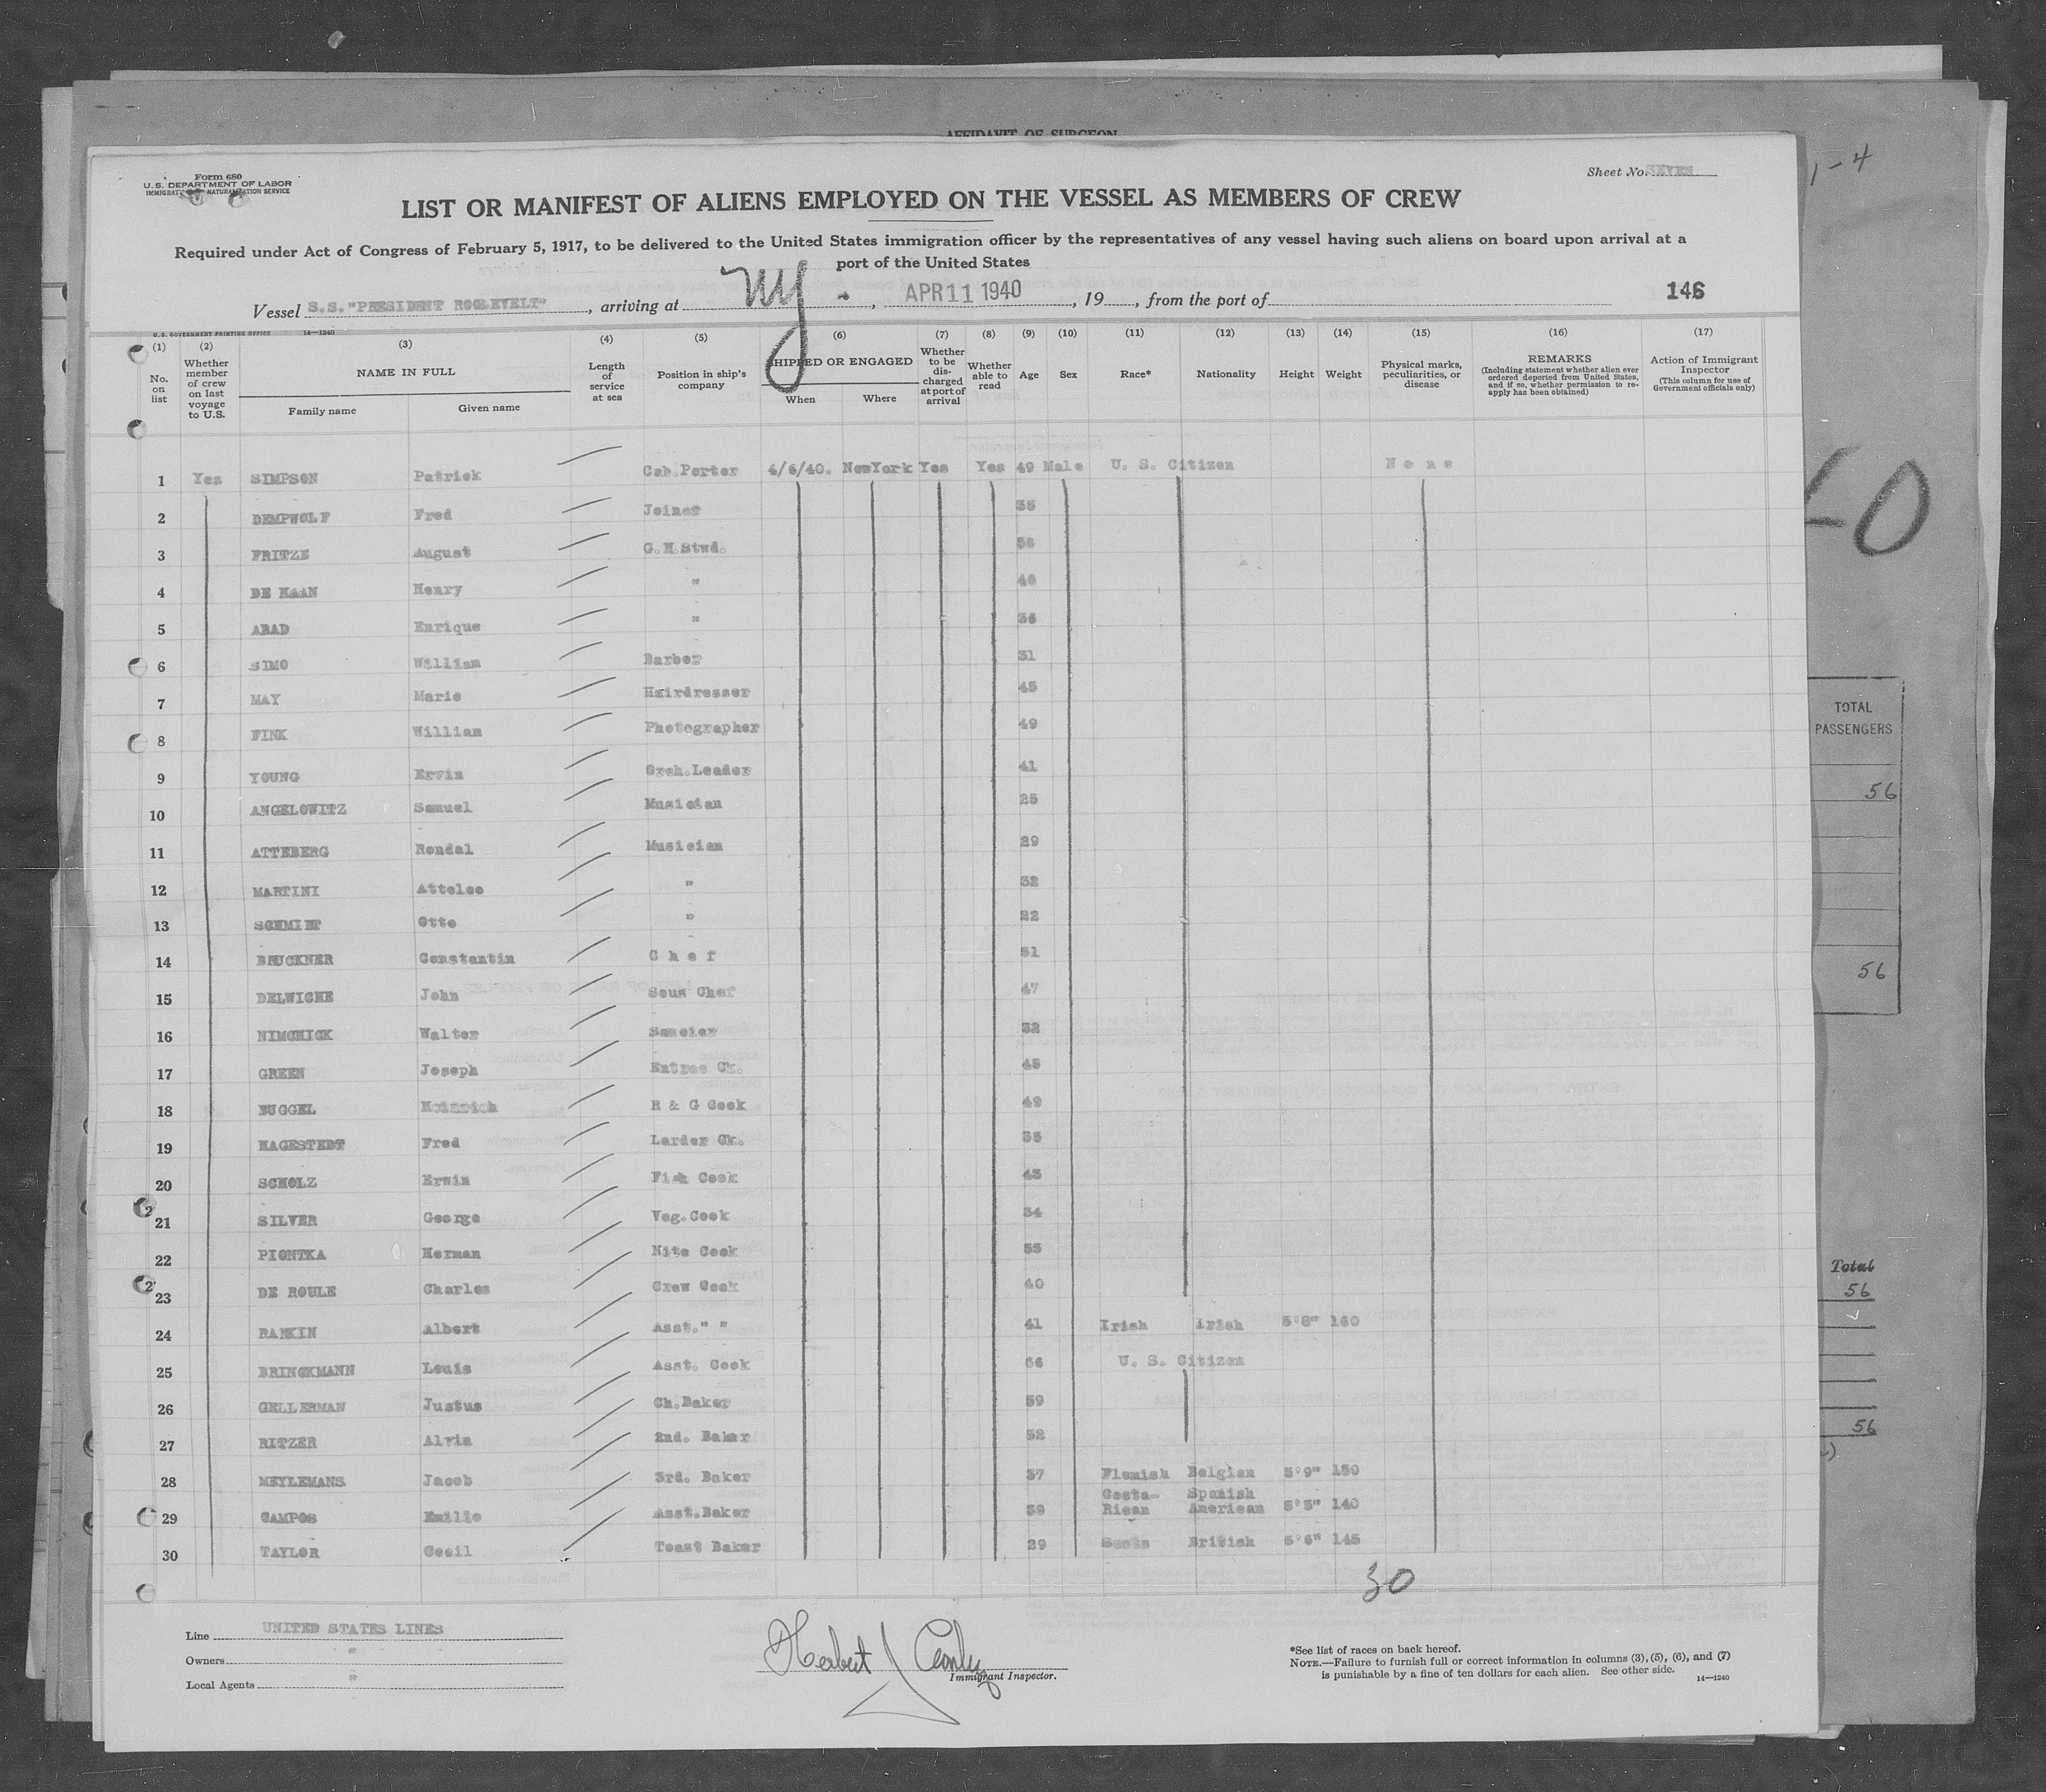 AFFIDAVIT OF SURGEON
1-4
Form 680
U. S. DEPARTMENT OF LABOR
IMMIGRATION NATURALIZATION SERVICE
Sheet No. SEVEN
LIST OR MANIFEST OF ALIENS EMPLOYED ON THE VESSEL AS MEMBERS OF CREW
Required under Act of Congress of February 5, 1917, to be delivered to the United States immigration officer by the representatives of any vessel having such aliens on board upon arrival at a
port of the United States
Vessel S.S."PRESIDENT ROOSEVELT", arriving at NY, APR 11 1940, 19, from the port of
146
U. S. GOVERNMENT PRINTING OFFICE 14—1240
(1) (2) (3) (4) (5) (6) (7) (8) (9) (10) (11) (12) (13) (14) (15) (16) (17)
No. on list
Whether member of crew on last voyage to U.S.
NAME IN FULL
Family name Given name
Length of service at sea
Position in ship's company
SHIPPED OR ENGAGED
When Where
Whether to be discharged at port of arrival
Whether able to read
Age Sex Race* Nationality Height Weight
Physical marks, peculiarities, or disease
REMARKS
(Including statement whether alien ever ordered deported from United States, and if so, whether permission to reapply has been obtained)
Action of Immigrant Inspector
(This column for use of Government officials only)
1 Yes SIMPSON Patrick Cab.Porter 4/6/40. NewYork Yes Yes 49 Male U. S. Citizen None
2 DEMPWOLF Fred Joiner 35
3 FRITZE August G.H.Stwd.
4 DE HAAN Henry "
5 ABAD Enrique " 36
6 SIMO William Barber 31
7 MAY Marie Hairdresser 45
8 FINK William Photographer 49
9 YOUNG Ervin Orch.Leader 41
10 ANGELOWITZ Samuel Musician 25
11 ATTEBERG Rondal Musician 29
12 MARTINI Attelee " 32
13 SCHMIDT Otto " 22
14 BRUCKNER Constantin Chef 51
15 DELWICHE John Sous Chef 47
16 NIMCHICK Walter Saucier 32
17 GREEN Joseph Entree Ck. 45
18 BUGGEL Heinrich R & G Cook 49
19 HAGESTEDT Fred Larder Ck. 35
20 SCHOLZ Erwin Fish Cook 45
21 SILVER George Veg.Cook 34
22 PIONTKA Herman Nite Cook 55
23 DE ROULE Charles Crew Cook 40
24 RANKIN Albert Asst." " 41 Irish Irish 5'8" 160
25 BRINCKMANN Louis Asst. Cook 56 U. S. Citizen
26 GELLERMAN Justus Ch.Baker 59
27 RITZER Alvin 2nd. Baker 52
28 MEYLEMANS Jacob 3rd. Baker 37 Flemish Belgian 5'9" 150
29 CAMPOS Emilio Asst.Baker 39 Costa-Rican Spanish American 5'5" 140
30 TAYLOR Cecil Toast Baker 29 Scots British 5'6" 145
30
Line UNITED STATES LINES
Owners "
Local Agents "
Herbert J Conly
Immigrant Inspector.
*See list of races on back hereof.
NOTE.—Failure to furnish full or correct information in columns (3), (5), (6), and (7)
is punishable by a fine of ten dollars for each alien. See other side. 14—1240
TOTAL
PASSENGERS
56
56
Total
56
56